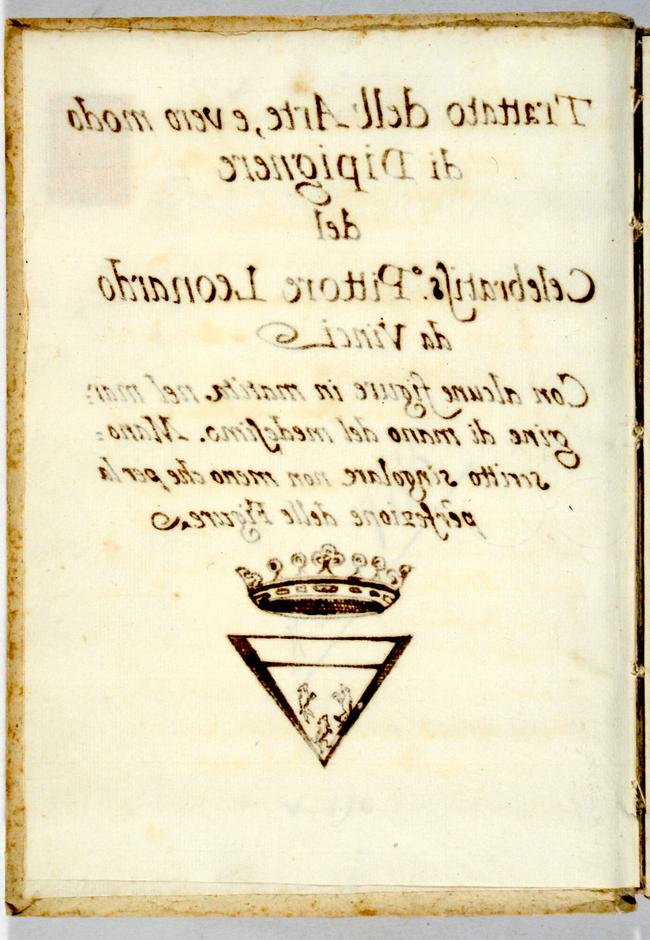 Trattato dell'Arte, e vero modo
di Dipignere
del
Celebratiss.º Pittore Leonardo
da Vinci
Con alcune figure in matita nel mar:
gine di mano del medesimo. Mano=
scritto singolare non meno che per la
perfezione delle Figure